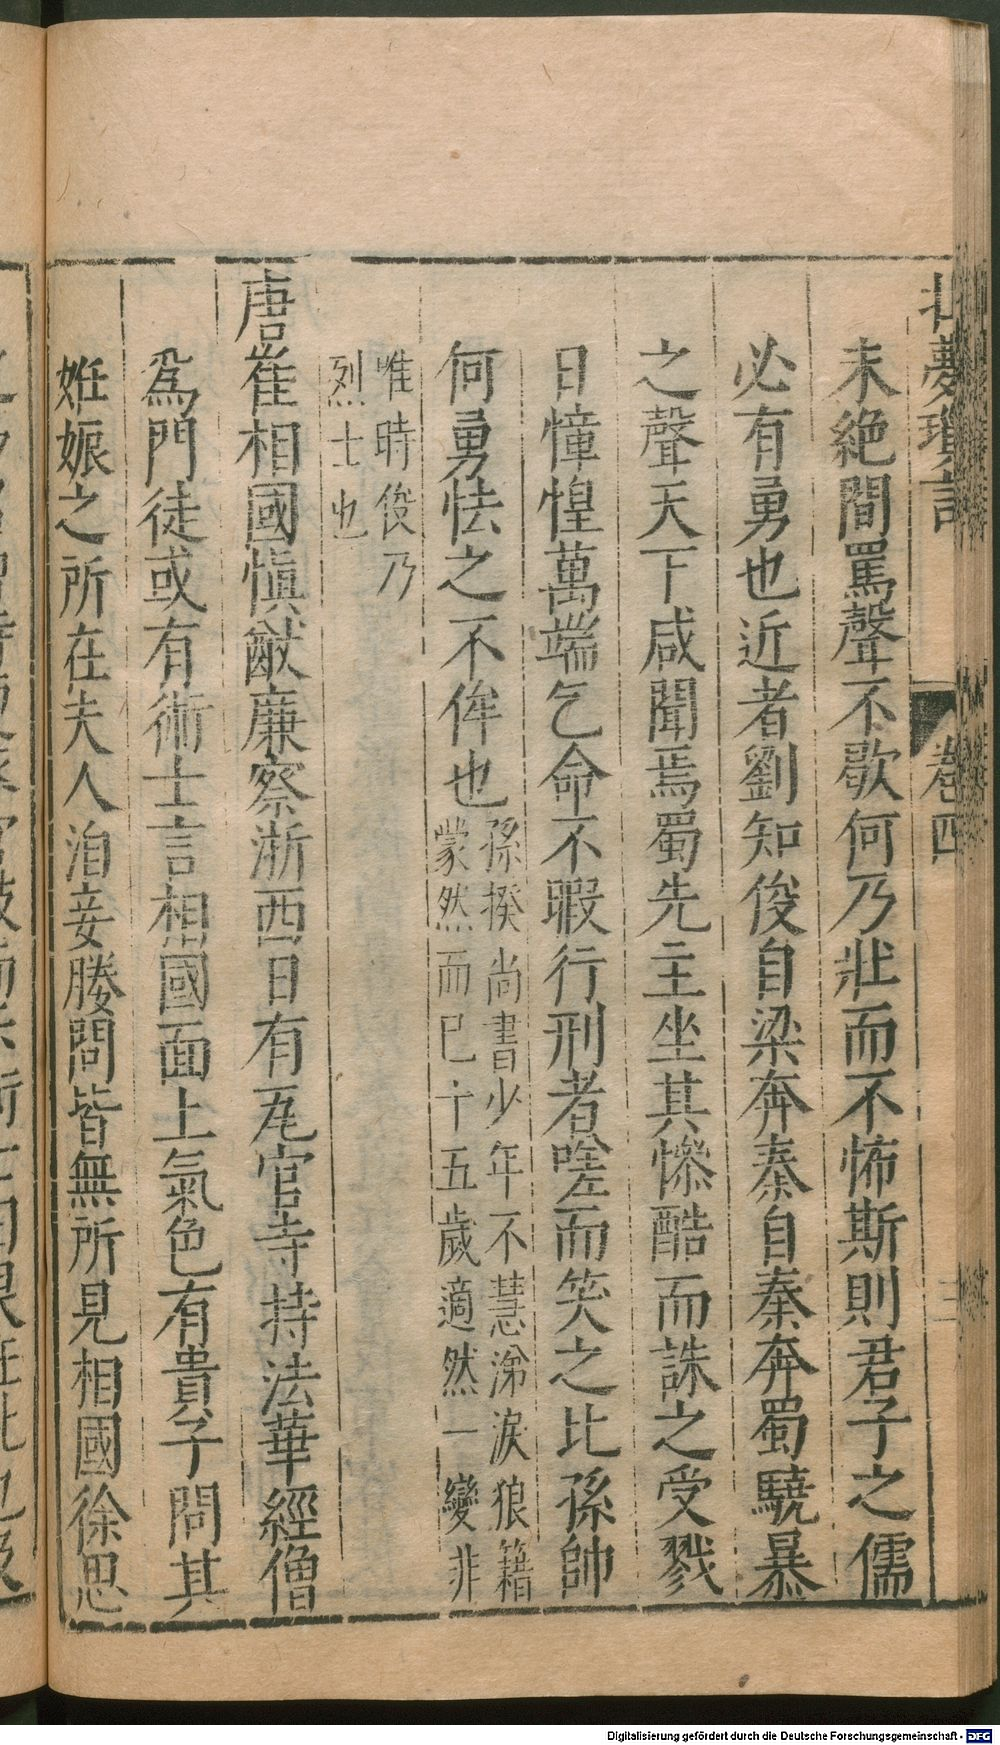 北夢瑣言 卷四
未絶間罵聲不歇何乃壯而不怖斯則君子之儒
必有勇也近者劉知俊自梁奔秦自秦奔蜀驍暴
之聲天下咸聞焉蜀先主坐其慘酷而誅之受戮
日憧惶萬端乞命不暇行刑者嗟而笑之比孫帥
何勇怯之不侔也孫揆尚書少年不慧涕淚狼籍
蒙然而已十五歲適然一變非
唯時俊乃
烈士也
唐崔相國愼猷廉察浙西日有瓦官寺持法華經僧
爲門徒或有術士言相國面上氣色有貴子問其
妊娠之所在夫人洎妾媵問皆無所見相國徐思
Digitalisierung gefördert durch die Deutsche Forschungsgemeinschaft - DFG